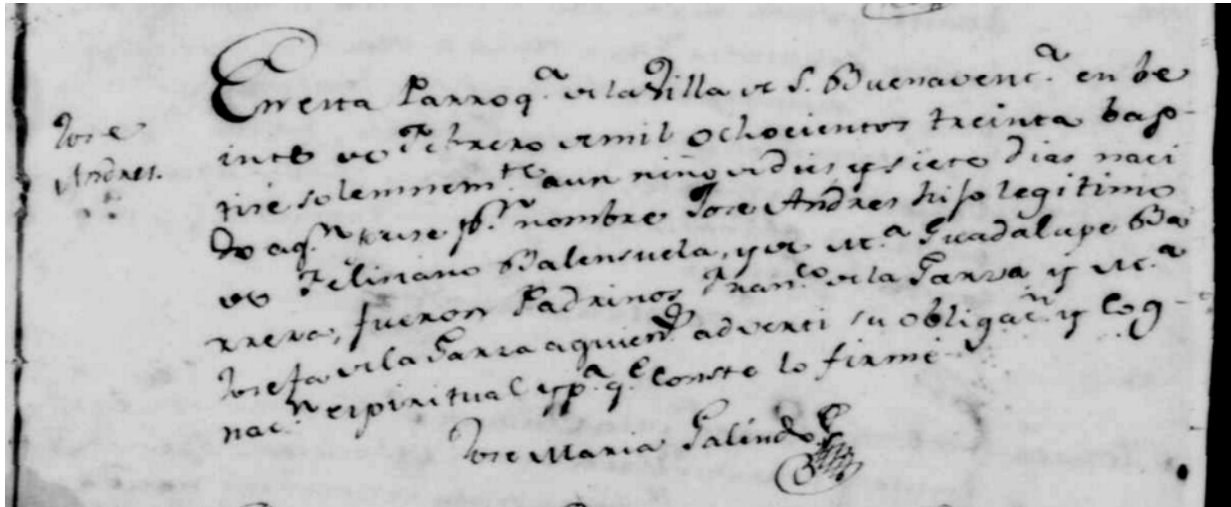 Jose
Andres.
En esta Parroq.ª de la Villa de S. Buenavent.ª en be
inte de Febrero de mil ochocientos treinta bap-
tise solemnem.te a un niño de dies y siete dias naci
do a q.n puse p.r nombre Jose Andres hijo legitimo
de Feliciano Balensuela, y de M.ª Guadalupe Ba
rrera, fueron Padrinos Fran.co de la Garza y M.ª
Josefa de la Garza a quien.s adverti su obligac.n y cog-
nac.n espiritual y p.ª q.e conste lo firmé
Jose Maria Galindo